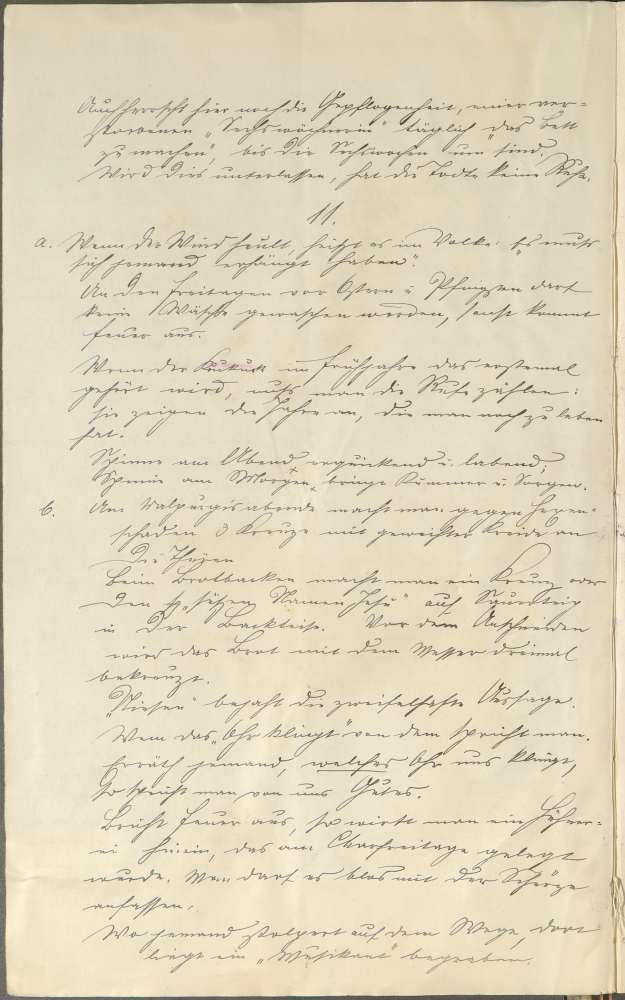 Auch herrscht hier noch die Gepflogenheit, einer ver=
storbenen „Sechswöchnerin" täglich „das Bett
zu machen", bis die Sechswochen um sind.
Wird dies unterlassen, hat die Todte keine Ruhe.
11.
a. Wenn der Wind heult, heißt es im Volke: „Es muß
sich jemand erhängt haben".
An den Freitagen vor Ostern u. Pfingsten darf
keine Wäsche gewaschen werden, sonst kommt
Feuer aus.
Wenn der Kukuk im Frühjahre das erstemal
gehört wird, muß man die Rufe zählen:
sie zeigen die Jahre an, die man noch zu leben
hat.
Spinne am Abend erquickend u. labend;
Spinne am Morgen bringt Kummer u. Sorgen.
b. Am Walpurgisabende macht man gegen Hexen=
schaden 3 Kreuze mit geweihter Kreide an
die Thüren
Beim Brotbacken macht man ein Kreuz oder
den „süßen Namen Jesu" auf Sauerteig
in der Backteise. Vor dem Anschneiden
wird das Brot mit dem Messer dreimal
bekreuzt.
„Niesen" bejaht die zweifelhafte Aussage.
Wem das „Ohr klingt" von dem spricht man.
Erräth jemand, welches Ohr uns klingt,
so spricht man von uns Gutes.
Bricht Feuer aus, so wirft man ein Hühner=
ei hinein, das am Charfreitage gelegt
wurde. Man darf es blos mit der Schürze
anfassen.
Wo jemand stolpert auf dem Wege, dort
liegt ein „Musikant" begraben.